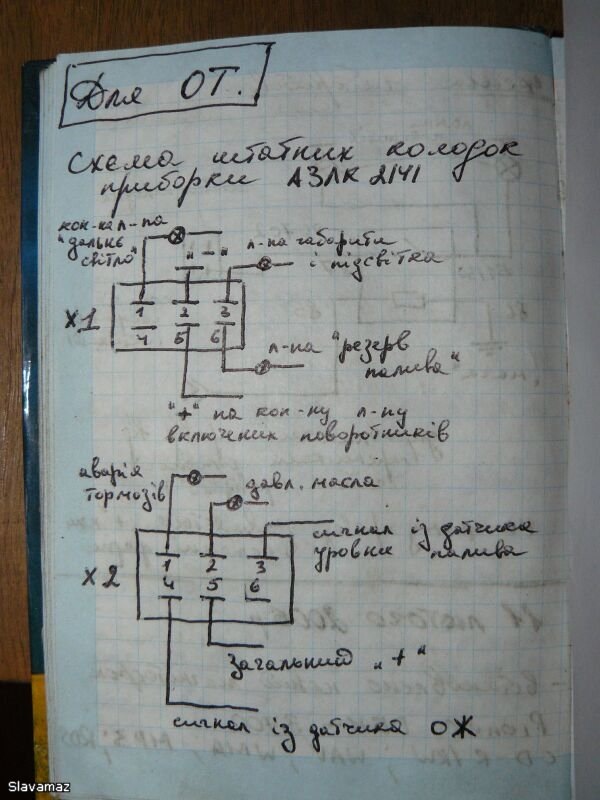 Для ОТ.
Схема штатних колодок
приборки АЗЛК 2141
кон-кал л-па
"дальнє
світло"
"-"
л-па габарити
і підсвітка
X1
1 2 3
4 5 6
л-па "резерв
палива"
"+" на кон-ну л-пу
включених поворотників
аварія
тормозів
давл. масла
сигнал із датчика
уровня палива
X2
1 2 3
4 5 6
Загальний "+"
сигнал із датчика ОЖ
Slavamaz